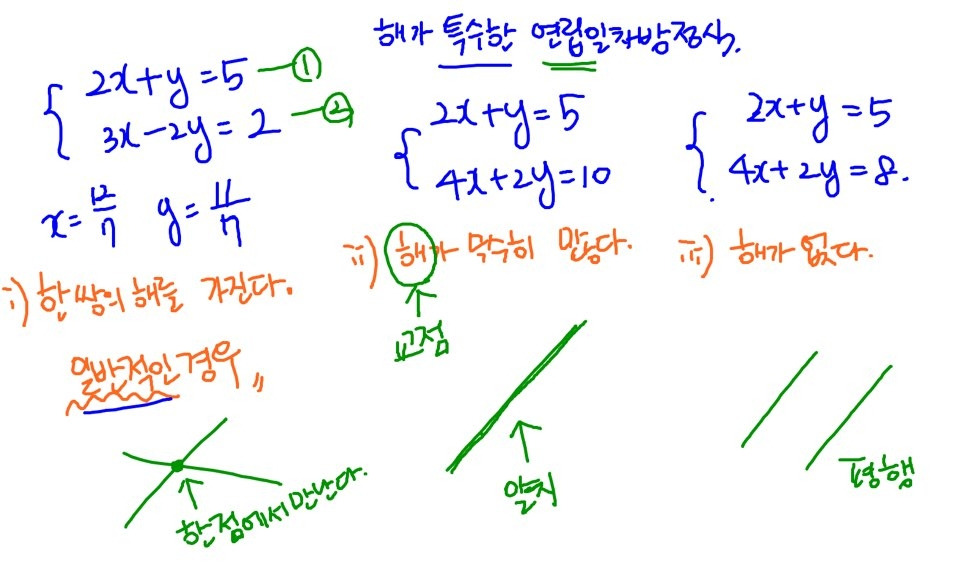 해가 특수한 연립일차방정식.
2x+y=5 ①
3x-2y=2 ②
x=12/7 y=11/7
i) 한쌍의 해를 가진다.
일반적인 경우
한점에서 만난다.
2x+y=5
4x+2y=10
ii) 해가 무수히 많다.
교점
일치
2x+y=5
4x+2y=8.
iii) 해가 없다.
평행